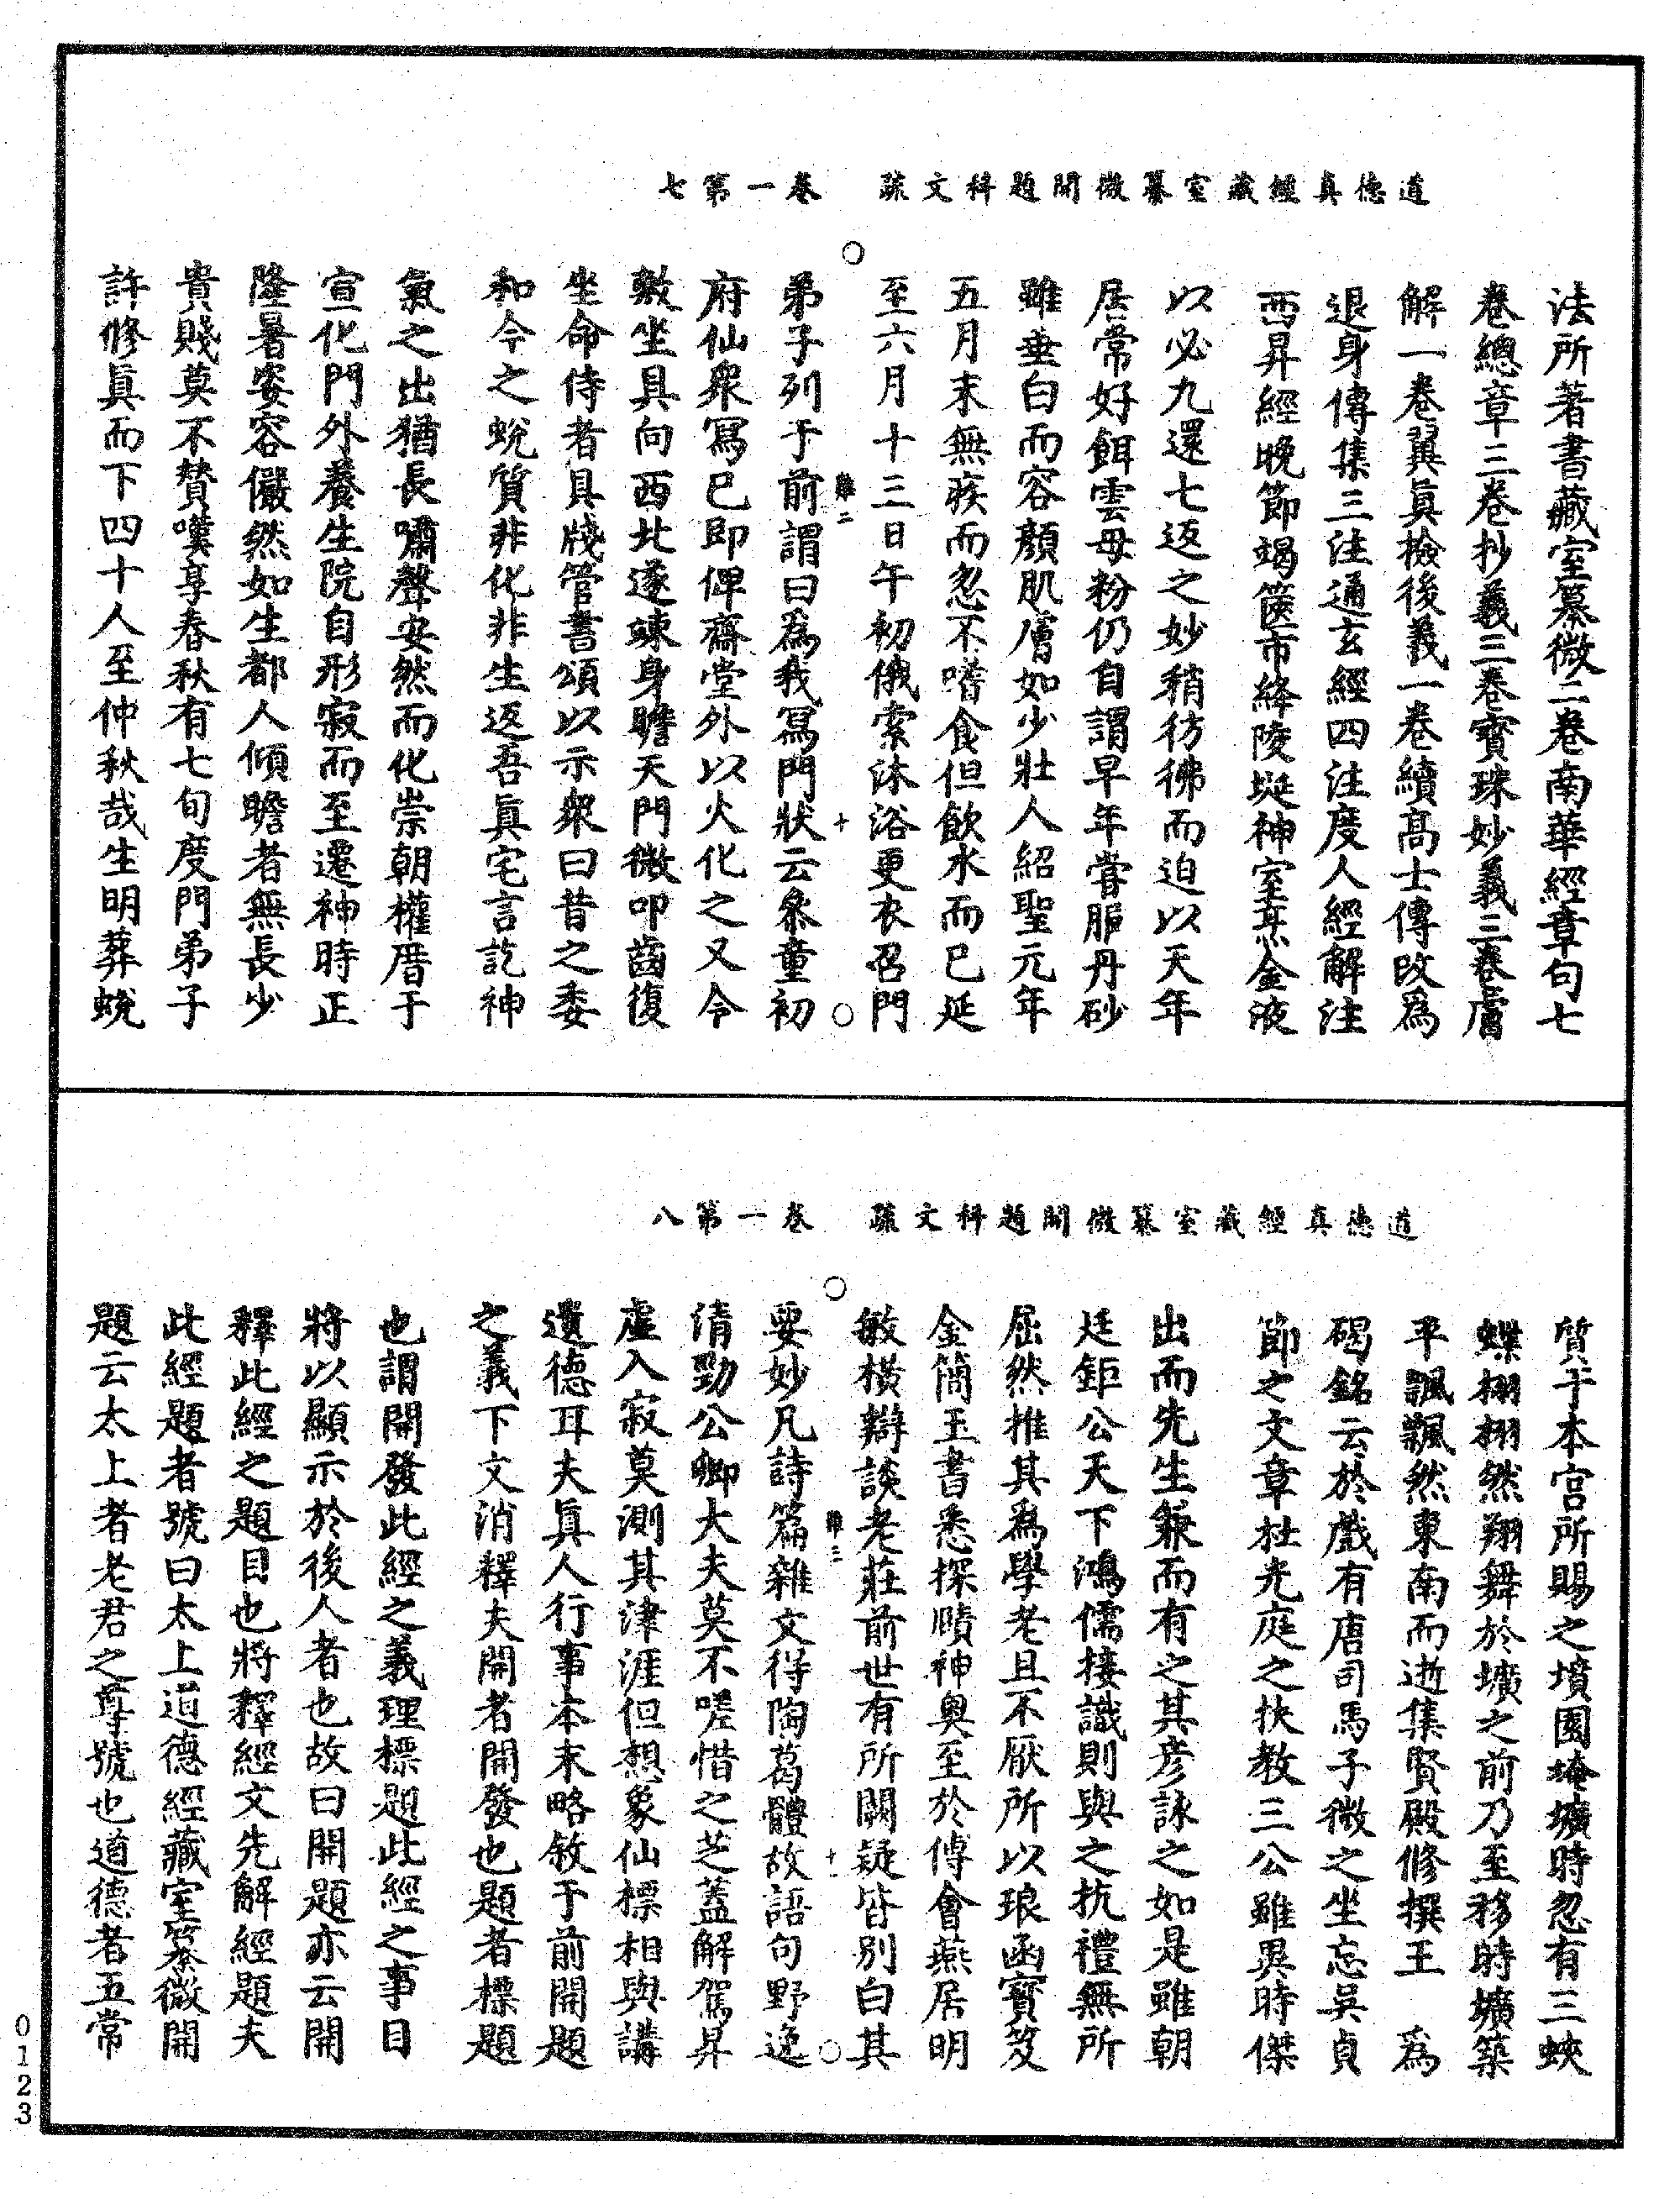 道德真經藏室纂微開題科文疏　卷一第七
法所著書藏室纂微二卷南華經章句七
卷總章三卷抄義三卷寶珠妙義三卷膚
解一卷翼眞撿後義一卷續髙士傳改爲
退身傳集三注通玄經四注度人經解注
西昇經晚節竭篋市絳陵埏神室烝金液
以必九還七返之妙稍彷彿而迫以天年
居常好餌雲母粉仍自謂早年嘗服丹砂
雖垂白而容顏肌膚如少壯人紹聖元年
五月末無疾而忽不嗜食但飲水而已延
至六月十三日午初俄索沐浴更衣召門
難二　十
弟子列于前謂曰爲我冩門狀云叅童初
府仙衆冩已即俾齋堂外以火化之又令
敷坐具向西北遂竦身瞻天門微叩齒復
坐命侍者具牋管書頌以示衆曰昔之委
和今之蛻質非化非生返吾眞宅言訖神
氣之出猶長嘯聲安然而化崇朝權厝于
宣化門外養生院自形寂而至遷神時正
隆暑姿容儼然如生都人傾瞻者無長少
貴賤莫不賛嘆享春秋有七旬度門弟子
許修眞而下四十人至仲秋哉生明葬蛻
道德真經藏室纂微開題科文疏　卷一第八
質于本宮所賜之墳園埯壙時忽有三蛺
蝶栩栩然翔舞於壙之前乃至移時壙築
平諷飄然東南而逝集賢殿修撰王　爲
碣銘云於戲有唐司馬子微之坐忘吳貞
節之文章杜光庭之扶教三公雖異時傑
出而先生兼而有之其彥詠之如是雖朝
廷鉅公天下鴻儒接識則與之抗禮無所
屈然推其爲學老且不厭所以琅函寳笈
金簡玉書悉探賾神奧至於傅會燕居明
敏橫辯談老莊前世有所闕疑皆別白其
難三　十一
要妙凡詩篇雜文得陶葛體故語句野逸
清勁公卿大夫莫不嗟惜之芝蓋解駕昇
虛入寂莫測其津涯但想象仙標相與講
遺德耳夫眞人行事本末略敘于前開題
之義下文消釋夫開者開發也題者標題
也謂開發此經之義理標題此經之事目
將以顯示於後人者也故曰開題亦云開
釋此經之題目也將釋經文先解經題夫
此經題者號曰太上道德經藏室纂微開
題云太上者老君之尊號也道德者五常
0123